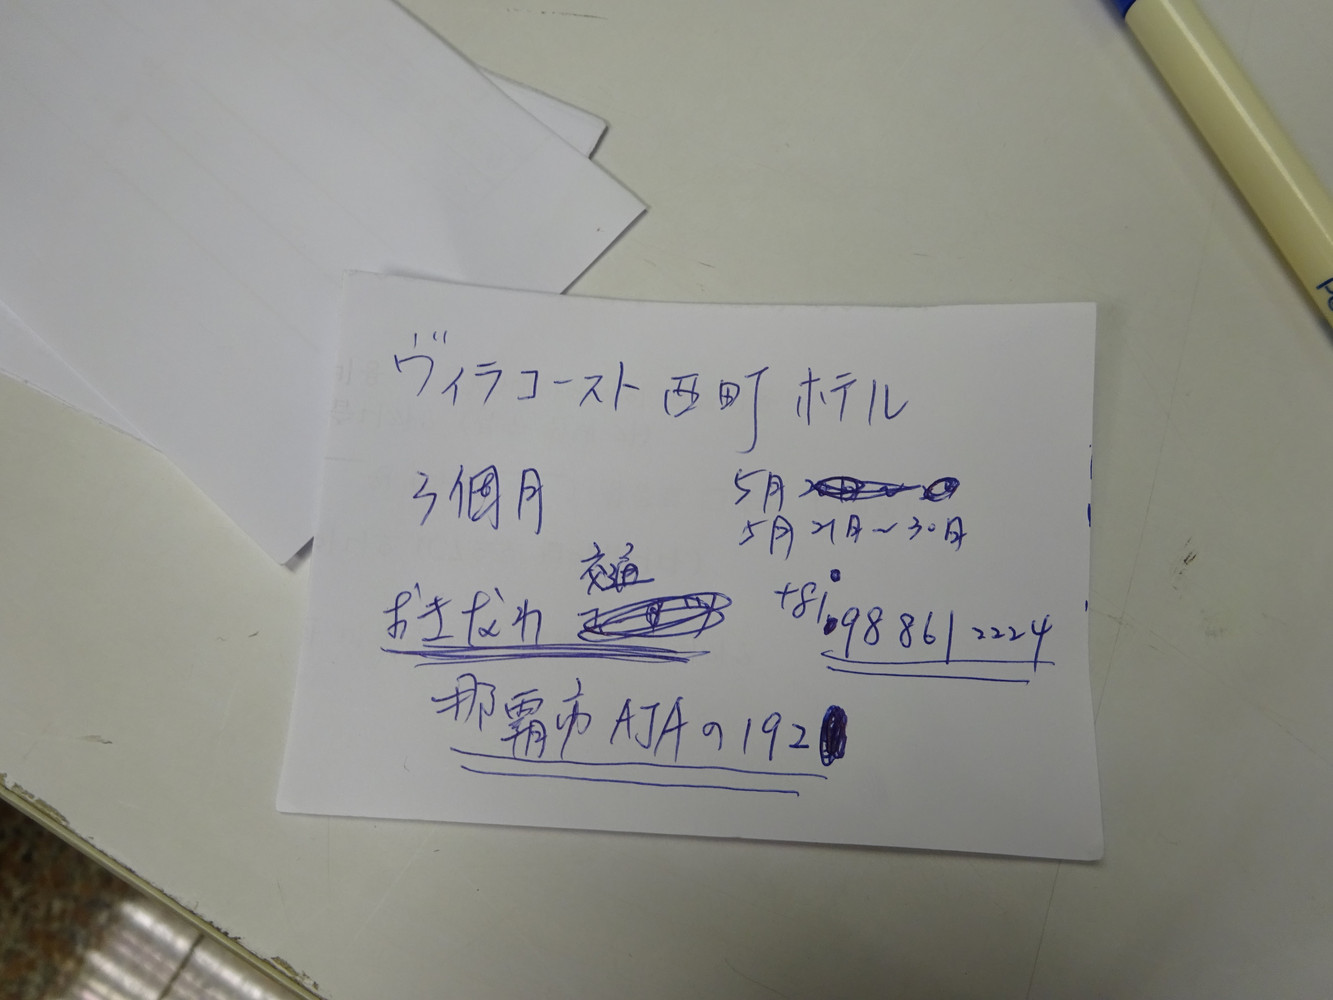 ヴィラコースト西町ホテル
3個月
5月
5月21日~30日
交通
おきなわ
+81 98 861 2224
那覇市AJAの192